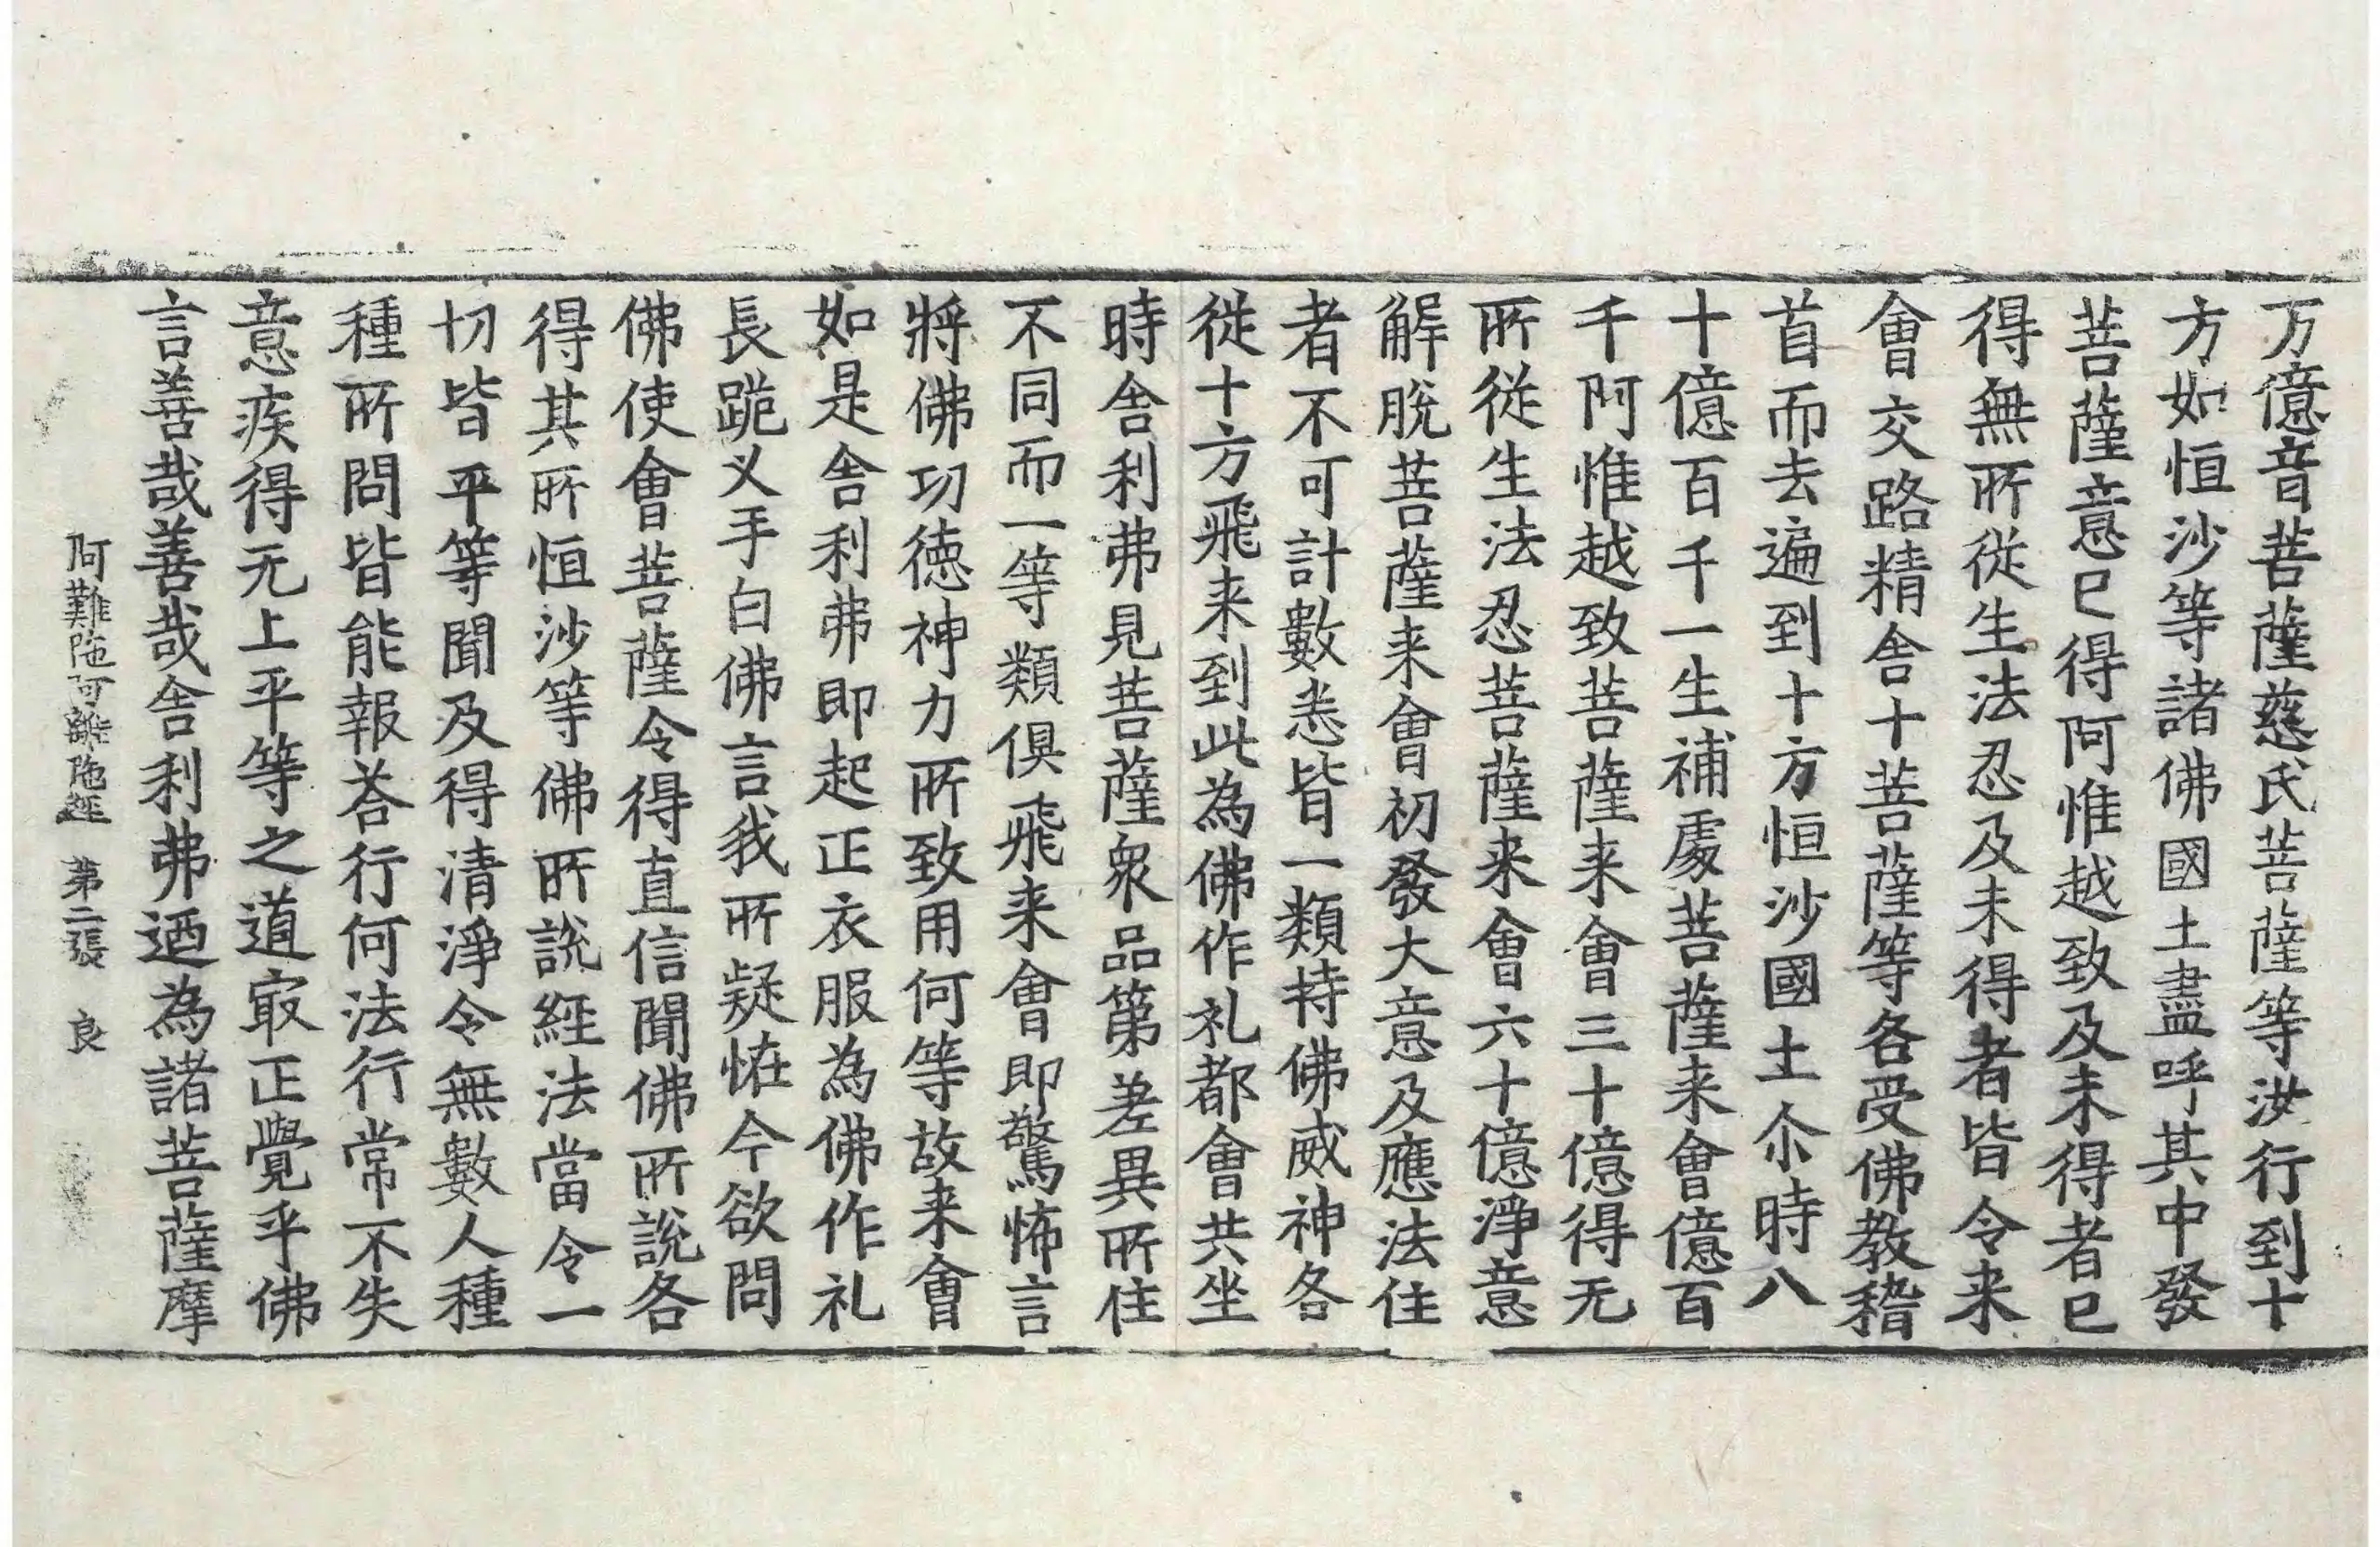 万億音菩薩慈氏菩薩等汝行到十
方如恒沙等諸佛國土盡呼其中發
菩薩意已得阿惟越致及未得者已
得無所從生法忍及未得者皆令来
會交路精舍十菩薩等各受佛教稽
首而去遍到十方恒沙國土尒時八
十億百千一生補處菩薩来會億百
千阿惟越致菩薩来會三十億得无
所從生法忍菩薩来會六十億淨意
解脫菩薩来會初發大意及應法住
者不可計數悉皆一類持佛威神各
從十方飛来到此為佛作礼都會共坐
時舍利弗見菩薩衆品第差異所住
不同而一等類俱飛来會即驚怖言
將佛功德神力所致用何等故来會
如是舍利弗即起正衣服為佛作礼
長跪叉手白佛言我所疑恠今欲問
佛使會菩薩令得直信聞佛所說各
得其所恒沙等佛所說經法當令一
切皆平等聞及得清淨令無數人種
種所問皆能報荅行何法行常不失
意疾得无上平等之道冣正覺乎佛
言善哉善哉舍利弗迺為諸菩薩摩
阿難陁阿難陁經　第二張　良